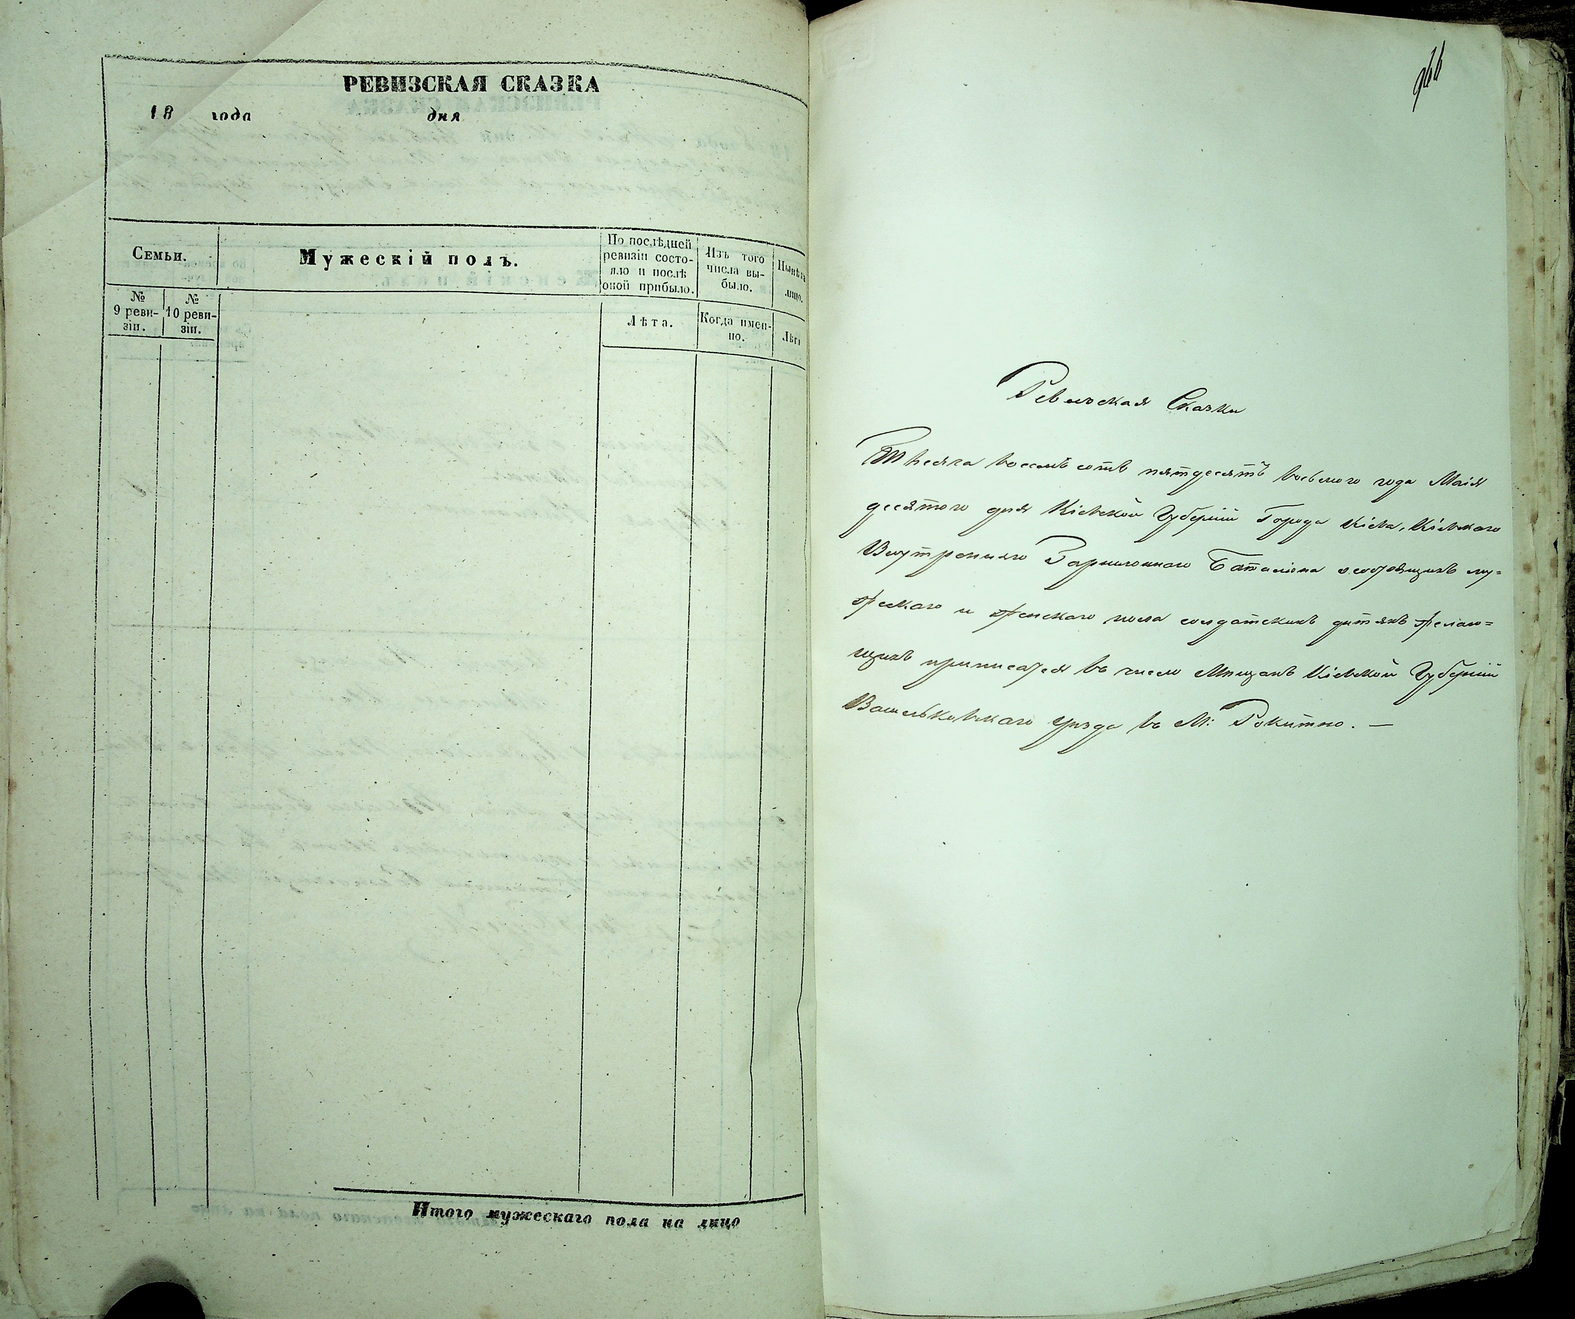 РЕВИЗСКАЯ СКАЗКА
18 года дня
Семьи.
Мужескій полъ.
По послѣдней
ревизіи состо-
яло и послѣ
оной прибыло.
Изъ того
числа вы-
было.
Нынѣ на
лицо.
№
9 реви-
зіи.
№
10 реви-
зіи.
Лѣта.
Когда имен-
но.
Лѣта
Итого мужескаго пола на лицо
Ревизская Сказка
Тысяча восемь сотъ пятдесятъ восьмого года Маія
десятого дня Кіевской Губерніи Города Кіева, Кіевскаго
Внутренняго Гарнизоннаго Баталіона о состоящихъ му-
жескаго и женскаго пола солдатскихъ дѣтяхъ желаю-
щихъ приписатся въ число Мѣщанъ Кіевской Губерніи
Васильковскаго уѣзда въ М: Рокитно. —